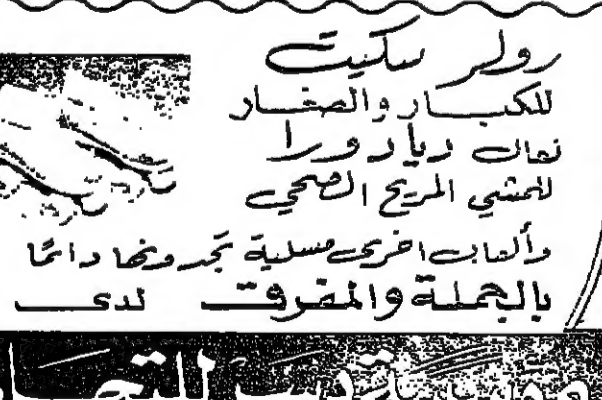 رولر سكيت
للكبار والصغار
نعال ديادورا
للمشي المريح الصحي
وألعاب اخرى مسلية تجدونها دائمًا
بالجملة والمفرق لدى